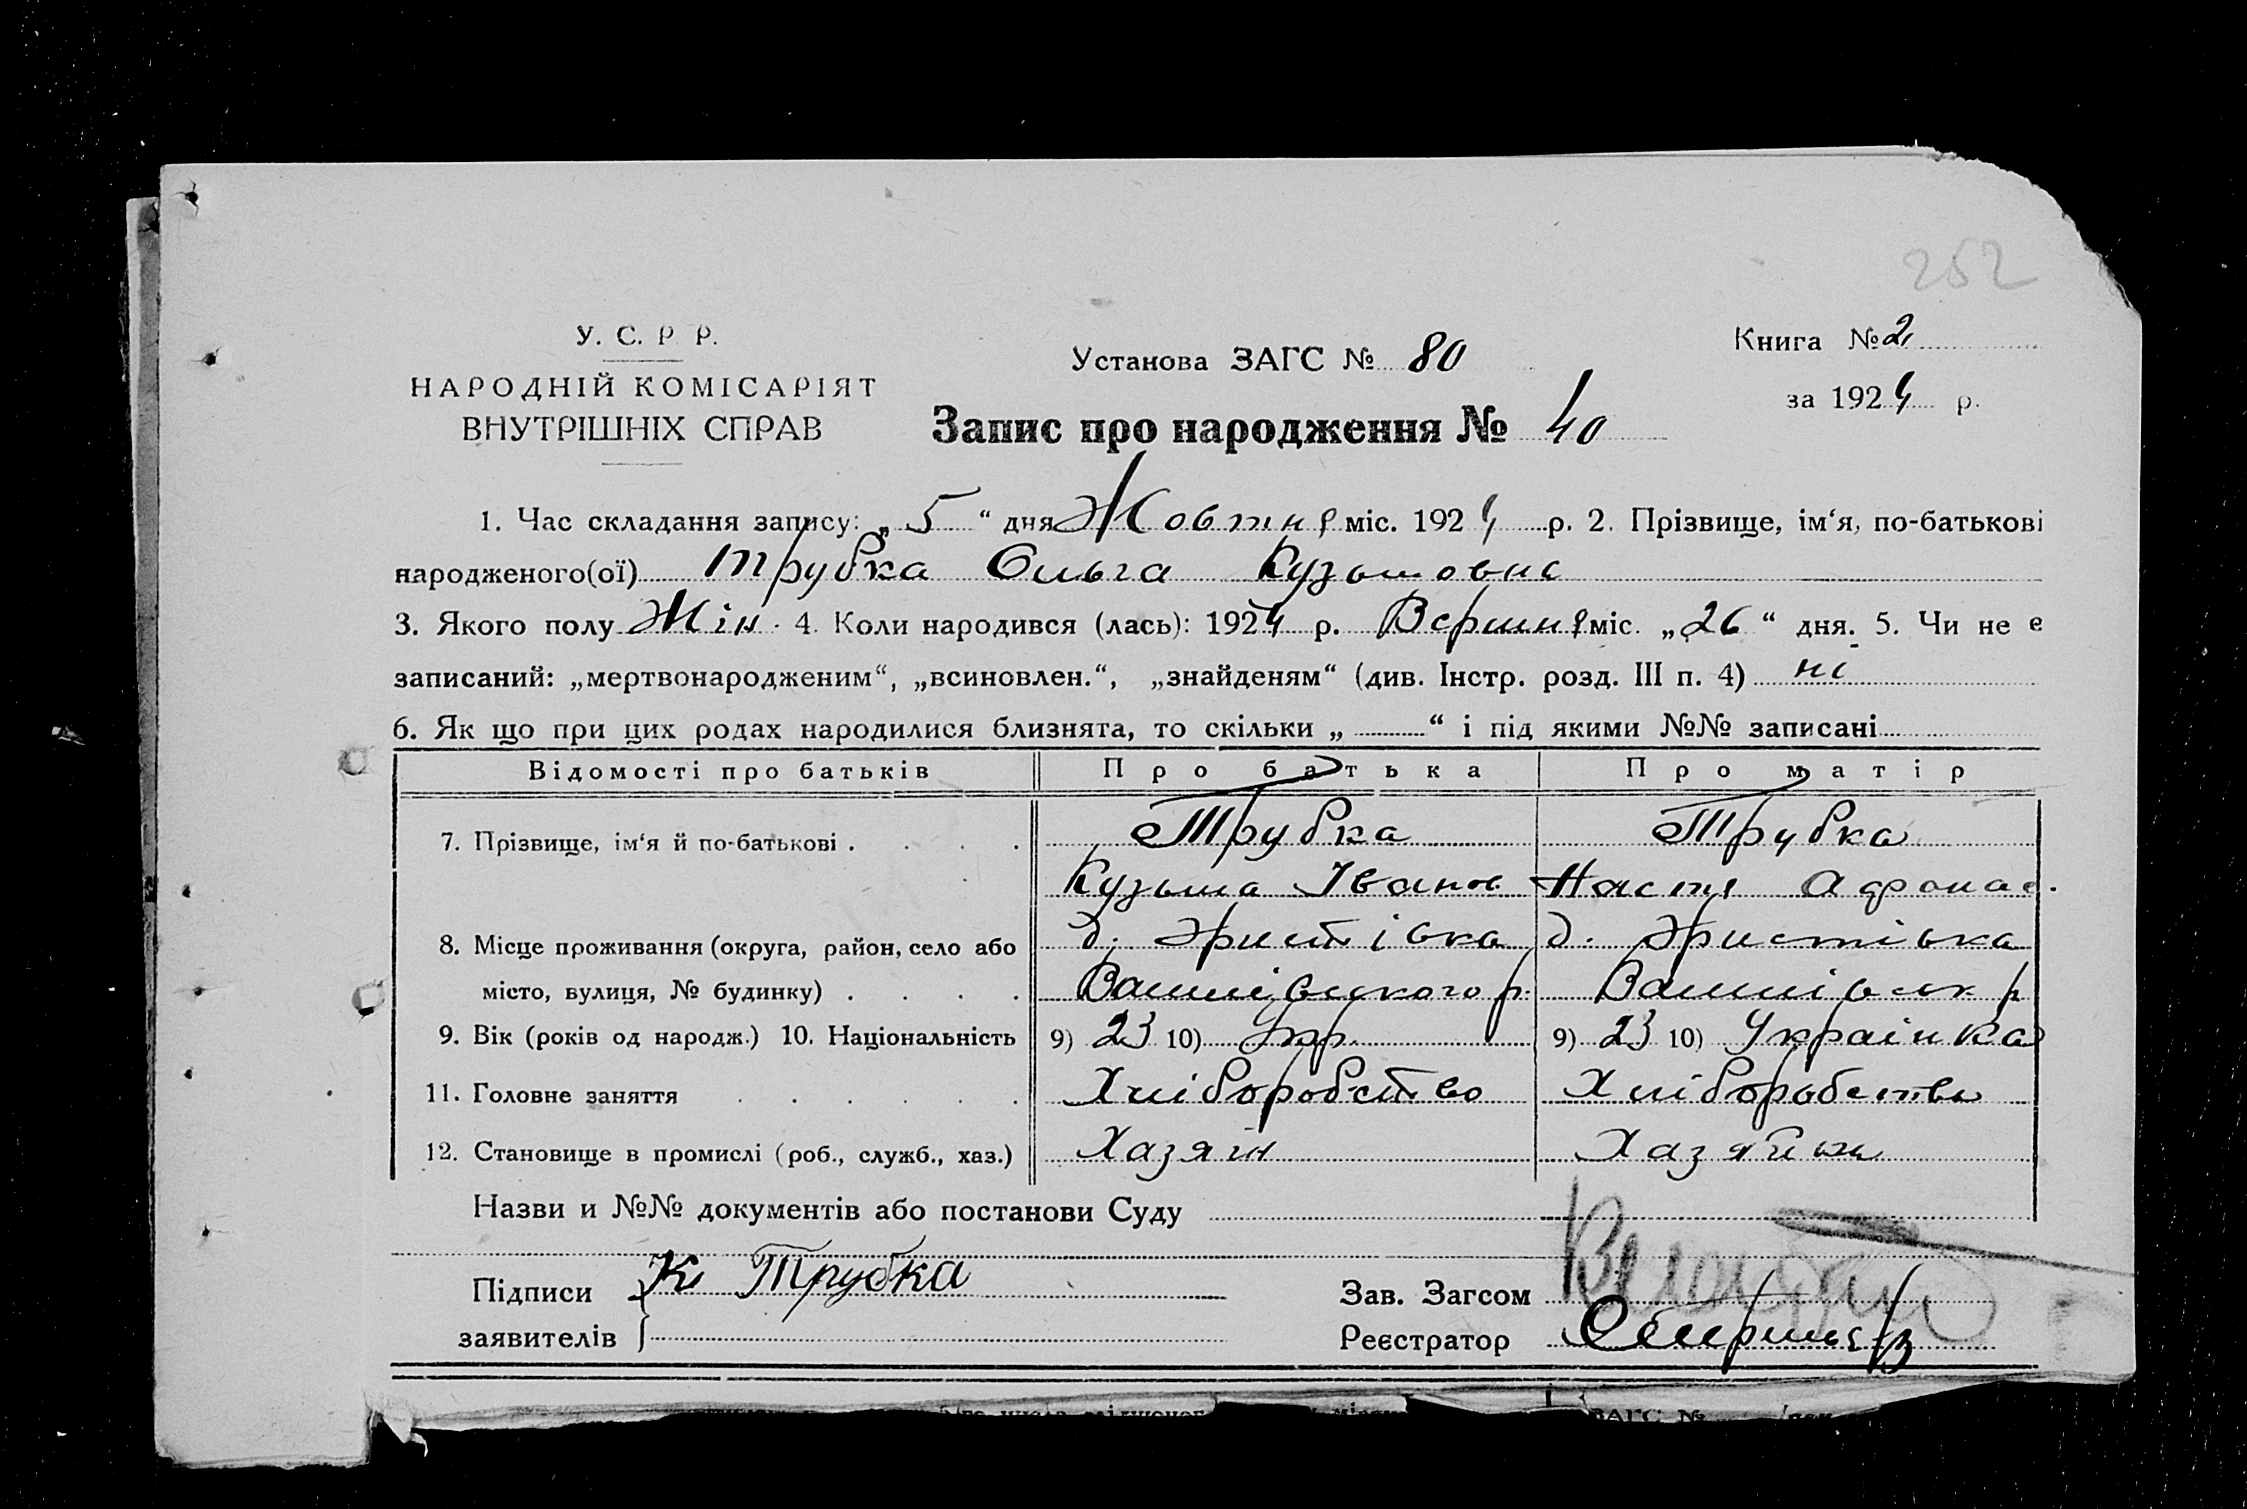 252
У. С. Р Р.
НАРОДНІЙ КОМІСАРІЯТ
ВНУТРІШНІХ СПРАВ
Установа ЗАГС № 80
Запис про народження № 40
Книга № 2
за 1924 р.
1. Час складання запису: „ 5 “ дня Жовтня міс. 1924 р. 2. Прізвище, ім‘я, по-батькові
народженого(ої) Трубка Ольга Кузьмовна
3. Якого полу Жін. 4. Коли народився (лась): 1924 р. Вершня міс. „ 26 “ дня. 5. Чи не є
записаний: „мертвонародженим“, „всиновлен.“, „знайденям“ (див. Інстр. розд. III п. 4) ні
6. Як що при цих родах народилися близнята, то скільки „ “ і під якими №№ записані
Відомості про батьків Про батька Про матір
7. Прізвище, ім‘я й по-батькові . . . . Трубка Трубка
Кузьма Іванов Настя Афонас.
8. Місце проживання (округа, район, село або д. Эристівка д. Эристівка
місто, вулиця, № будинку) . . . . р. р
9. Вік (років од народж.) 10. Національність 9) 23 10) Укр. 9) 23 10) Украінка
11. Головне заняття . . . . . . Хліборобство Хліборобство
12. Становище в промислі (роб., служб., хаз.) Хазяін
Назви и №№ документів або постанови Суду
Підписи К Трубка
заявителів
Зав. Загсом
Реєстратор
ЗАГС №